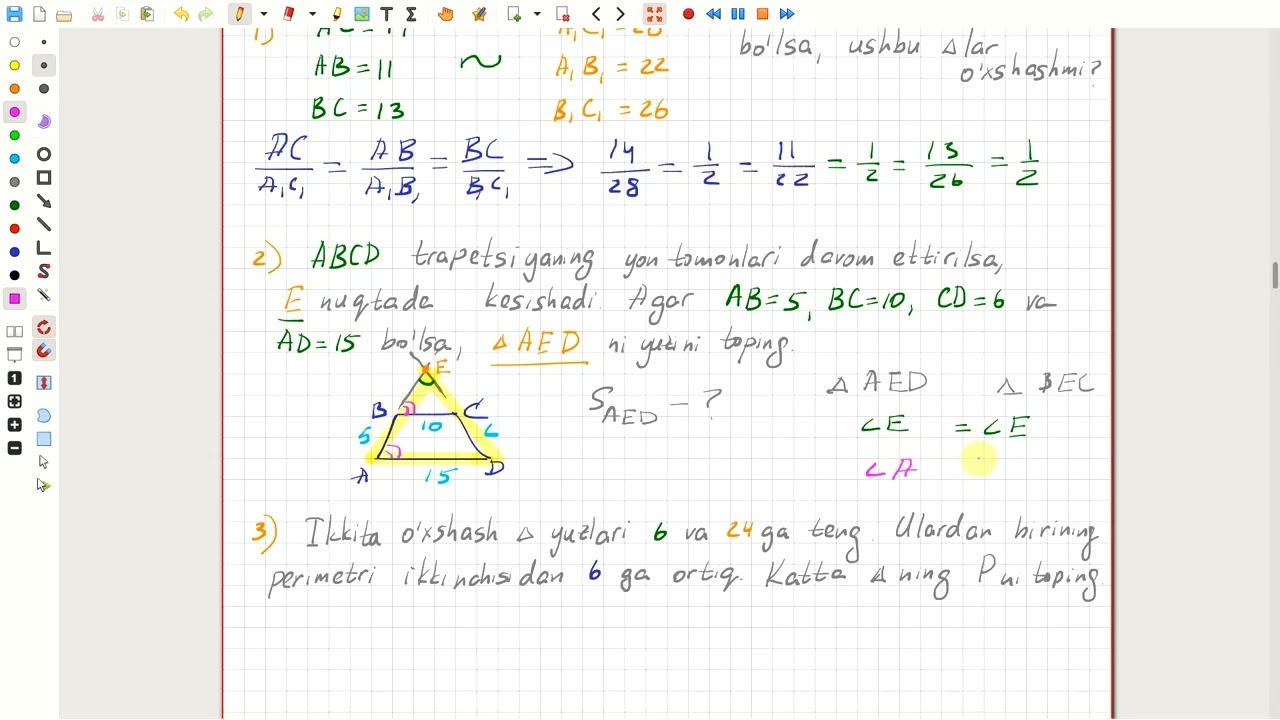 1)
bo'lsa, ushbu △lar
o'xshashmi?
AB = 11 ~ A₁B₁ = 22
BC = 13 B₁C₁ = 26
AC/A₁C₁ = AB/A₁B₁ = BC/B₁C₁ => 14/28 = 1/2 = 11/22 = 1/2 = 13/26 = 1/2
2) ABCD trapetsiyaning yon tomonlari davom ettirilsa,
E nuqtada kesishadi. Agar AB=5, BC=10, CD=6 va
AD=15 bo'lsa, △AED ni yuzini toping.
E
B C
5 10 6
A D
15
S AED - ?
△ AED △ BEC
∠E = ∠E
∠A
3) Ikkita o'xshash △ yuzlari 6 va 24 ga teng. Ulardan birining
perimetri ikkinchisidan 6 ga ortiq. Katta △ ning P ni toping.